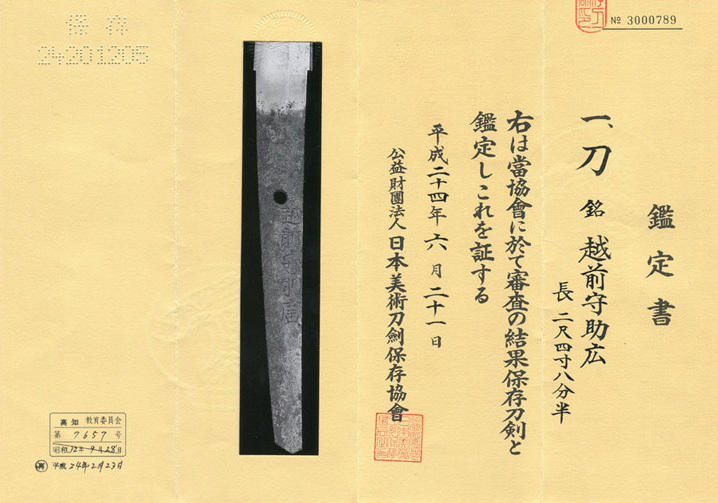 № 3000789
鑑定書
一、刀 銘 越前守助広
長 二尺四寸八分半
右は當協會に於て審査の結果保存刀剣と
鑑定しこれを証する
平成二十四年六月二十一日
公益財團法人 日本美術刀劍保存協會
越前守助廣
保存
24201205
高知 教育委員会
第 7657 号
昭和 32年9月28日
平成 24年2月23日